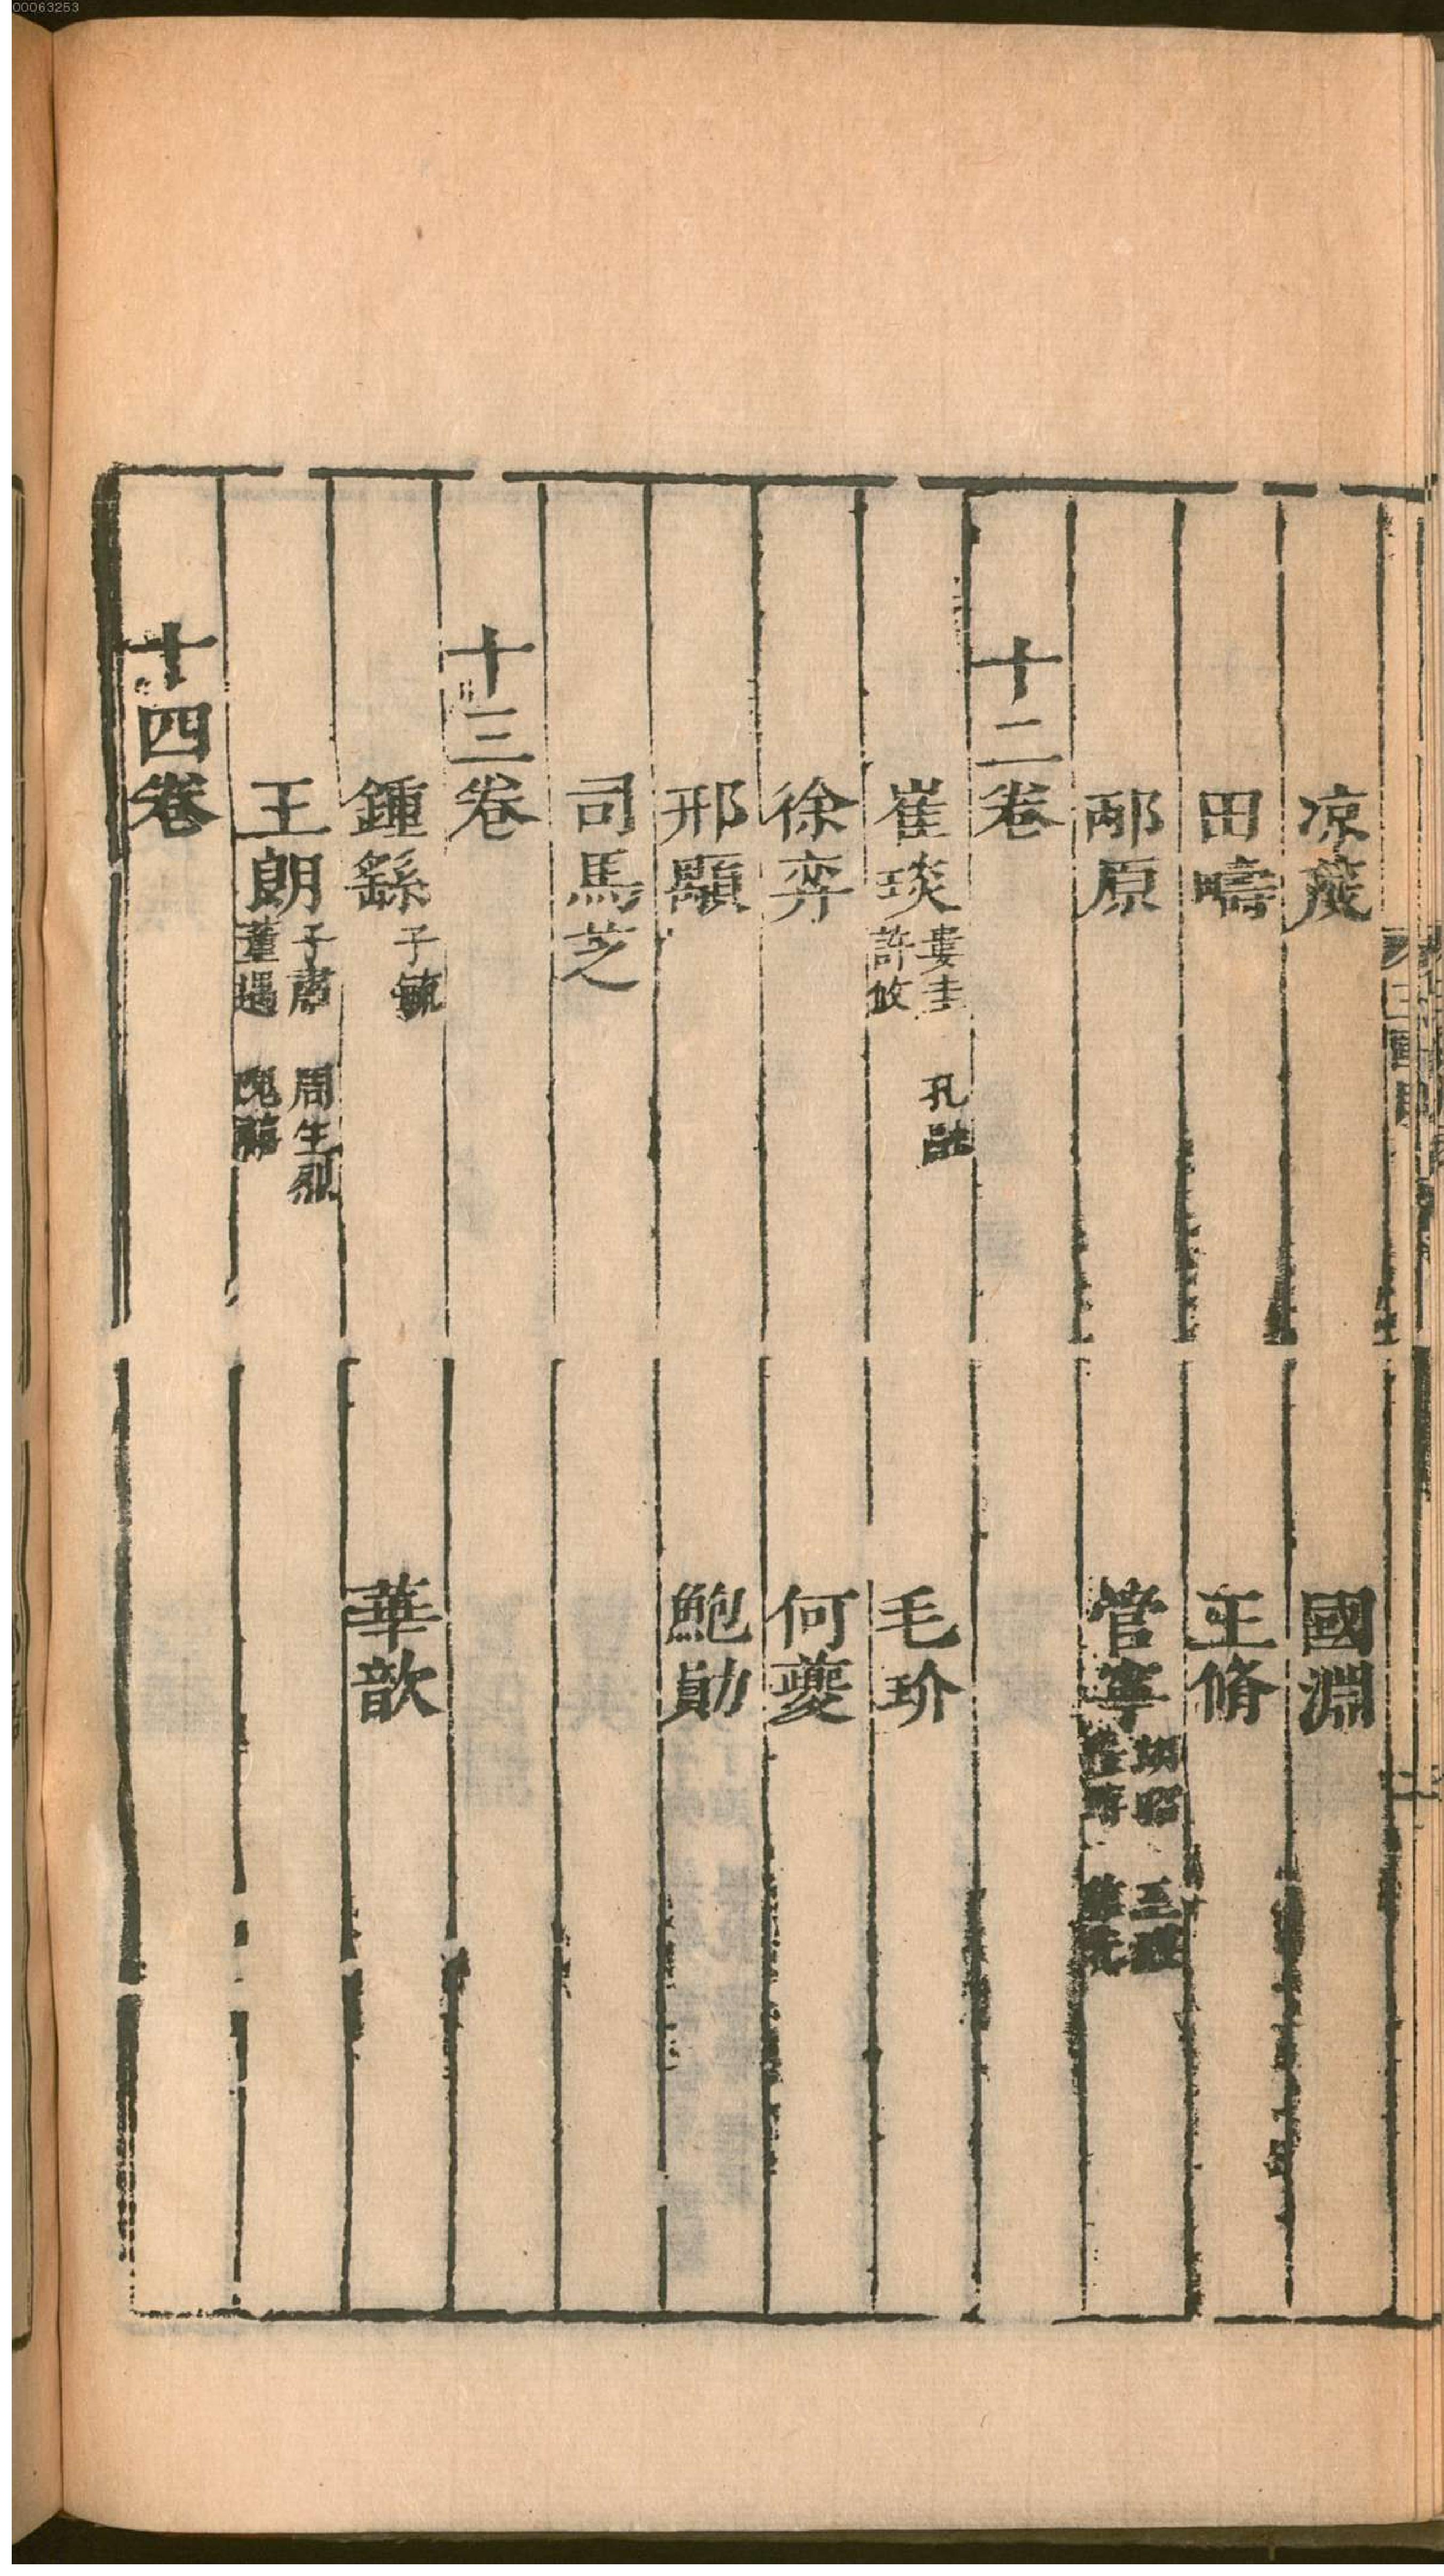 00063253
凉茂 國淵
田疇 王脩
邴原 管寧 胡昭 王烈 張臶 焦先
十二卷
崔琰 婁圭 孔融 許攸 毛玠
徐弈 何夔
邢顒 鮑勛
司馬芝
十三卷
鍾繇 子毓 華歆
王朗 子肅 周生烈 董遇 隗禧
十四卷